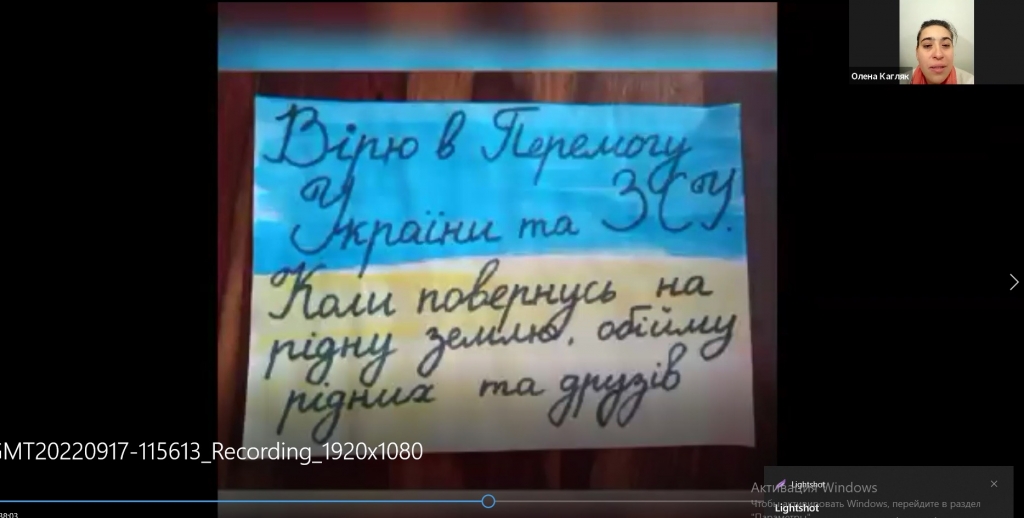 Олена Кагляк
Вірю в Перемогу
України та ЗСУ.
Коли повернусь на
рідну землю, обійму
рідних та друзів
GMT20220917-115613_Recording_1920x1080
Lightshot
Активация Windows
Чтобы активировать Windows, перейдите в раздел
"Параметры".
Lightshot
38:03